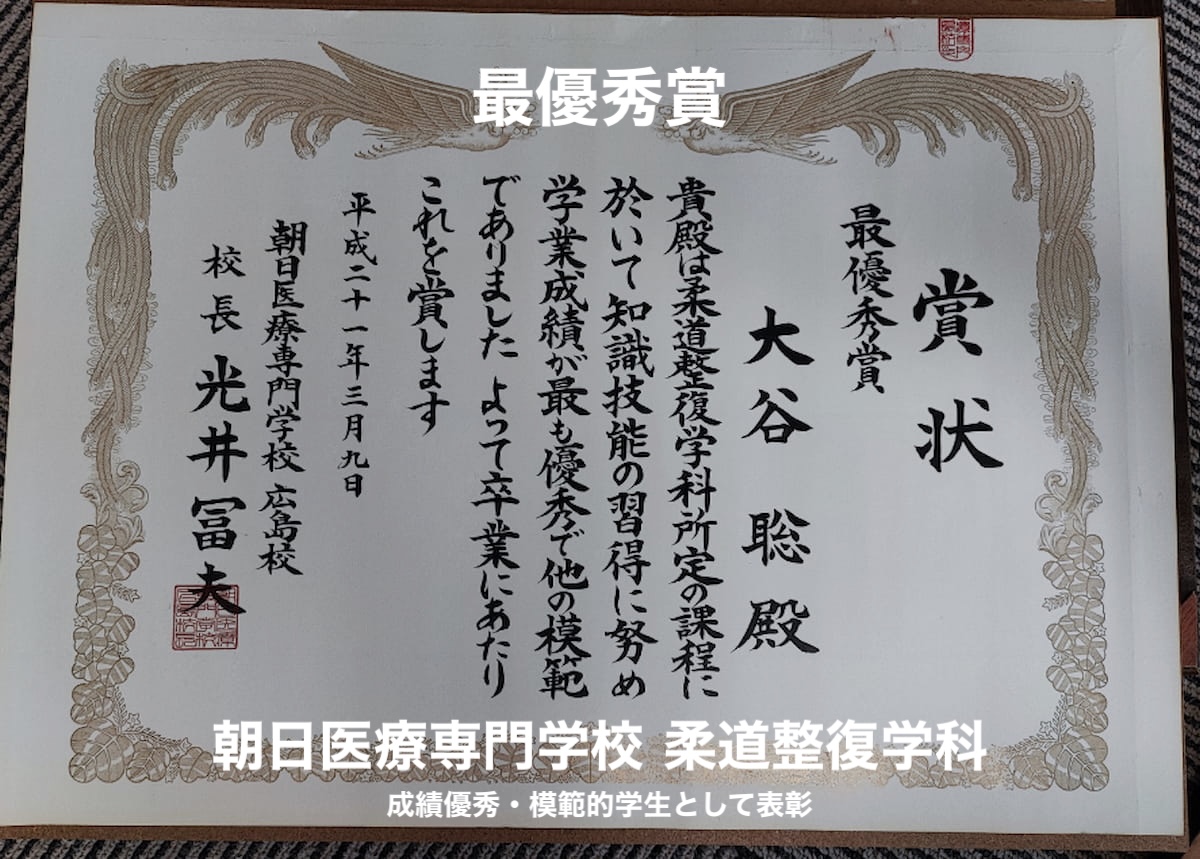 最優秀賞
賞状
最優秀賞
大谷 聡 殿
貴殿は柔道整復学科所定の課程に
於いて知識技能の習得に努め
学業成績が最も優秀で他の模範
でありました よって卒業にあたり
これを賞します
平成二十一年三月九日
朝日医療専門学校 広島校
校長 光井冨夫
朝日医療専門学校 柔道整復学科
成績優秀・模範的学生として表彰